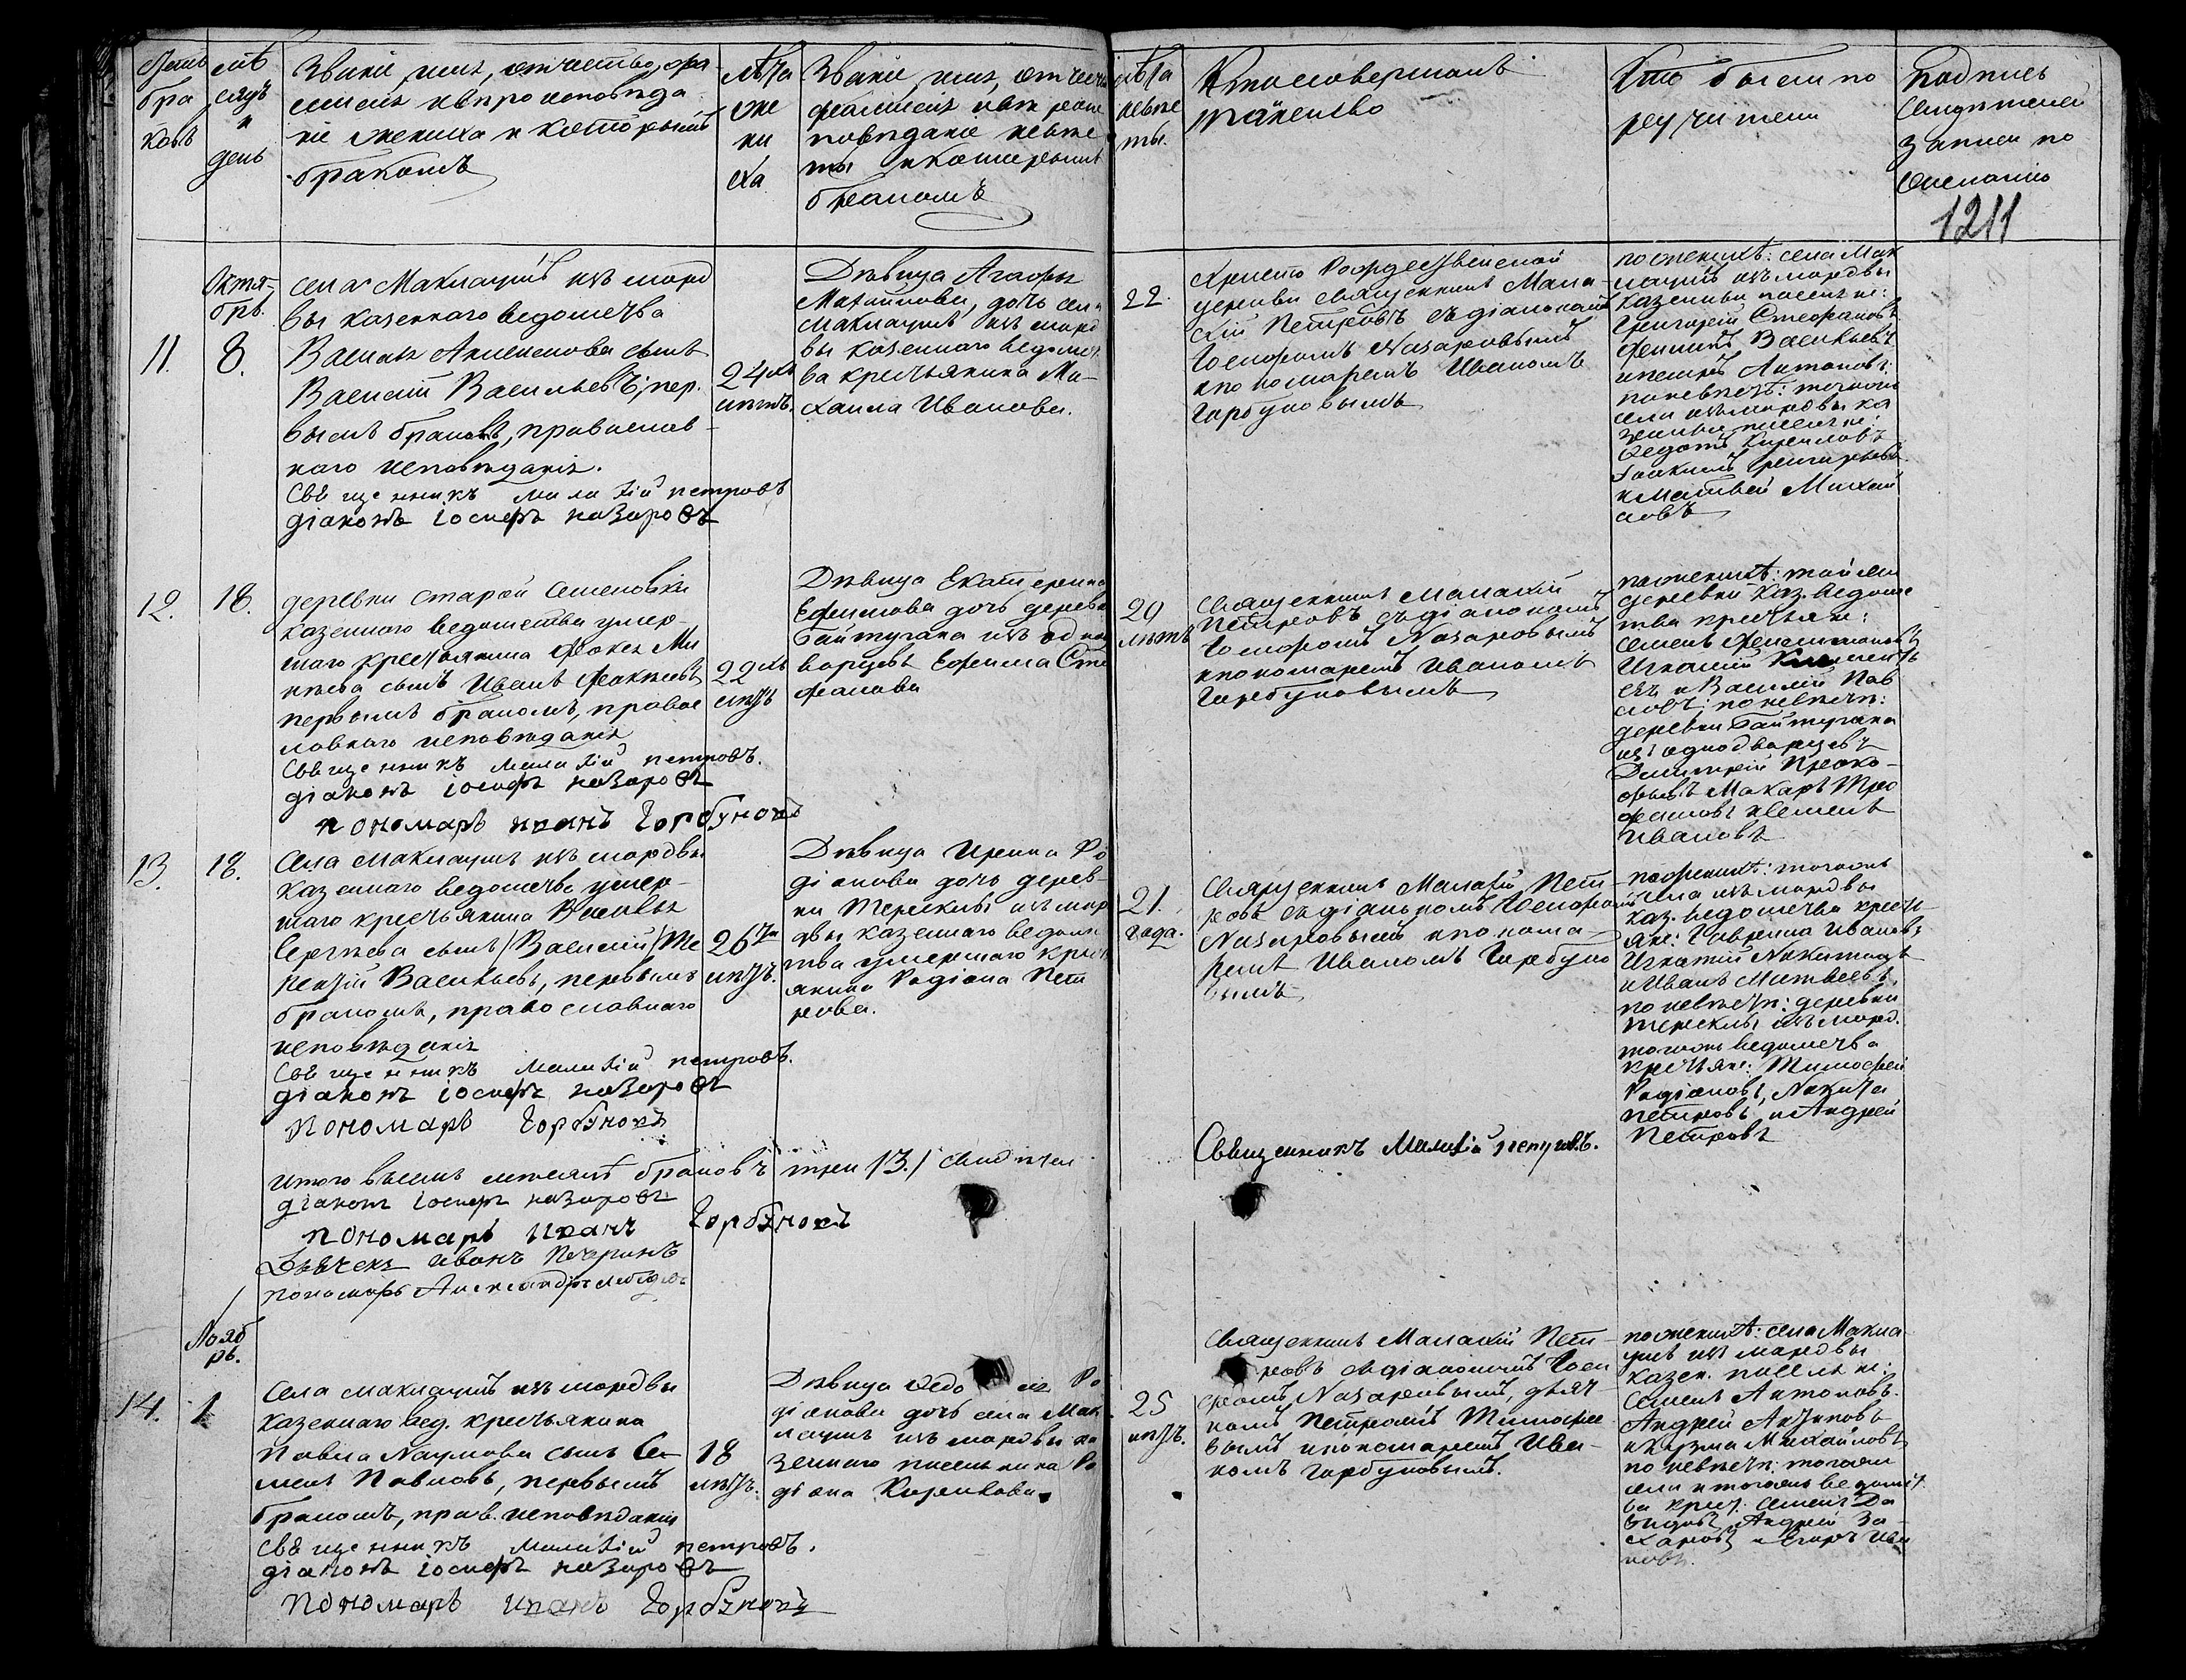 Счетъ
бра
ковъ
мѣ
сяцъ
и
день
Званіе, имя, отчество, фа
милія и вѣроисповѣда
ніе жениха и которымъ
бракомъ
лѣта
же
ни
ха
Званіе, имя, отчество
фамилія и вѣроис
повѣданіе невѣс
ты и которымъ
бракомъ
лѣта
невѣс
ты.
Кто совершалъ
таинство
Кто были по
ручители
Подпись
свидѣтелей
записи по
желанію
1211
Октя-
брь.
11.
8.
села Маклаушъ изъ морд
вы казеннаго ведомства
Василья Алексеева сынъ
Василій Васильевъ, пер.
вымъ бракомъ, православ-
наго исповѣданія.
Священникъ Малахій Петровъ
діаконъ Іосифъ Назаровъ
24хъ
лѣтъ.
Дѣвица Агафья
Михайлова, дочь села
Маклаушъ изъ морд
вы казеннаго ведомст
ва крестьянина Ми-
хаила Иванова.
22.
Христо Рождественской
церкви священникъ Мала-
хій Петровъ съ діакономъ
Іосифомъ Назаровымъ
и пономаремъ Иваномъ
Горбуновымъ
по женихѣ: села Мак
лаушъ изъ мордвы
казенные поселяне:
Григорій Стефановъ
Филипъ Васильевъ
Антоновъ:
по невѣстѣ: тогожъ
села изъ мордвы ка
зенные поселяне
Федотъ Кириловъ
Григорьевъ
и Матвей Михай
ловъ
12.
18.
деревни Старой Семеновки
казеннаго ведомства умер-
шаго крестьянина Фокея Ми
хѣева сынъ Иванъ Фокѣевъ
первымъ бракомъ, правос
лавнаго исповѣданія
Священникъ Малахій Петровъ.
діаконъ Іосифъ Назаровъ
пономарь Иванъ Горбуновъ
22хъ
лѣтъ
Дѣвица Екатерина
Ефимова дочь деревни
Байтугана изъ одно
дворцевъ Ефима Сте
фанова
20
лѣтъ
Священникъ Малахій
Петровъ съ діакономъ
Іосифомъ Назаровымъ
и пономаремъ Иваномъ
Горбуновымъ
по женихѣ: той же
деревни каз. ведомс
тва крестьяне:
Семенъ
Игнатій
евъ и Василій Пав
ловъ; по невѣстѣ:
деревни Байтугана
изъ однодворцевъ
Димитрій Проко-
фьевъ Макаръ Тро
фимовъ и Семенъ
Ивановъ
13.
18.
Села Маклаушъ изъ мордвы
казеннаго ведомства умер-
шаго крестьянина Василья
Сергѣева сынъ /Василій/ Те
рентій Васильевъ, первымъ
бракомъ, православнаго
исповѣданія
Священникъ Малахій Петровъ.
діаконъ Іосифъ Назаровъ
пономарь Горбуновъ
26ти
лѣтъ.
Дѣвица Ирина Ро
діонова дочь дерев-
ни Терексы изъ мор
двы казеннаго ведомс
тва умершаго крест
янина Родіона Пет
рова.
21.
года.
Священникъ Малахій Пет-
ровъ съ діакономъ Іосифомъ
Назаровымъ и понома-
ремъ Иваномъ Горбуно
вымъ
по женихѣ: тогожъ
села изъ мордвы
каз. ведомства кресть-
яне: Гаврила Ивановъ
Игнатій Никитинъ
и Иванъ Матвеевъ,
по невѣстѣ: деревни
Терексы изъ морд.
тогожъ ведомства
крестьяне: Тимофей
Родіоновъ, Никита
Петровъ и Андрей
Петровъ
Итого въ семъ месяцѣ браковъ три 13./ свидетел
Священникъ Малахій Петровъ.
діаконъ Іосифъ Назаровъ
пономарь Иванъ Горбуновъ
Дьячекъ Иванъ Печеринъ
пономарь Александръ
Нояб
рь.
14.
1
Села Маклаушъ изъ мордвы
казеннаго вед. крестьянина
Павла Наумова сынъ Се-
менъ Павловъ, первымъ
бракомъ, прав. исповѣданія
Священникъ Малахій Петровъ.
діаконъ Іосифъ Назаровъ
пономарь Иванъ Горбуновъ
18
лѣтъ.
Дѣвица Федо ія Ро
діонова дочь села Мак
лаушъ изъ мордвы ка
зеннаго поселянина Ро
діона Кирилова.
25
лѣтъ.
Священникъ Малахій Пет-
ровъ съ діакономъ Іоси
фомъ Назаровымъ, дьяч-
комъ Петромъ Тимофее
вымъ и пономаремъ Ива-
номъ Горбуновымъ.
по женихѣ: села Макла
ушъ изъ мордвы
казен. поселяне:
Семенъ Антоновъ.
Андрей Антиповъ
и Кузма Михайловъ
по невѣстѣ: тогожъ
села и тогожъ ведомст
ва крест. Семенъ Да
выдовъ, Андрей За-
харовъ и Егоръ Ива
новъ.